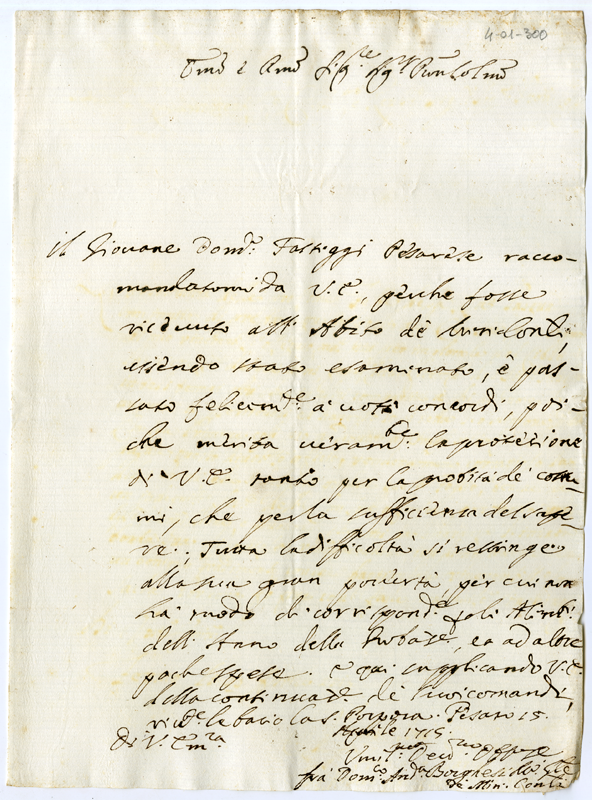 4-01-300
Emo e Rmo Sigre Sigr Pron Colmo
Il Giovane Domco Fastiggi Pesarese racco-
mandatomi da V.E., perche fosse
ricevuto all'Abito de Min: Conli,
essendo stato esaminato, è pas-
sato felicemte a voti concordi, poi-
che merita veramte la protezione
di V.E. tanto per la probità de costu-
mi, che per la sufficienza del sape-
re; Tutta la difficoltà si restringe
alla sua gran povertà, per cui non
ha modo di corrispondre
dell'Anno della Probazne, ed ad altre
poche spese. E qui supplicando V.E.
della continuaze de suoi comandi,
le bacio la s. Porpora. Pesaro 15.
Aprile 1715.
Di V. Emza
Umilmo Devmo
fra Domco Anda Borghesi
Min. Conle